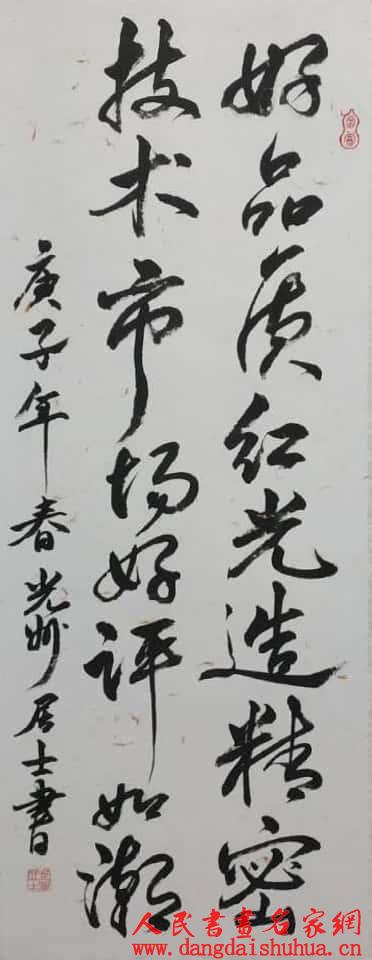 好品质红光造精密
技术市场好评如潮
庚子年春光州居士書
人民書畫名家網
www.dangdaishuhua.cn